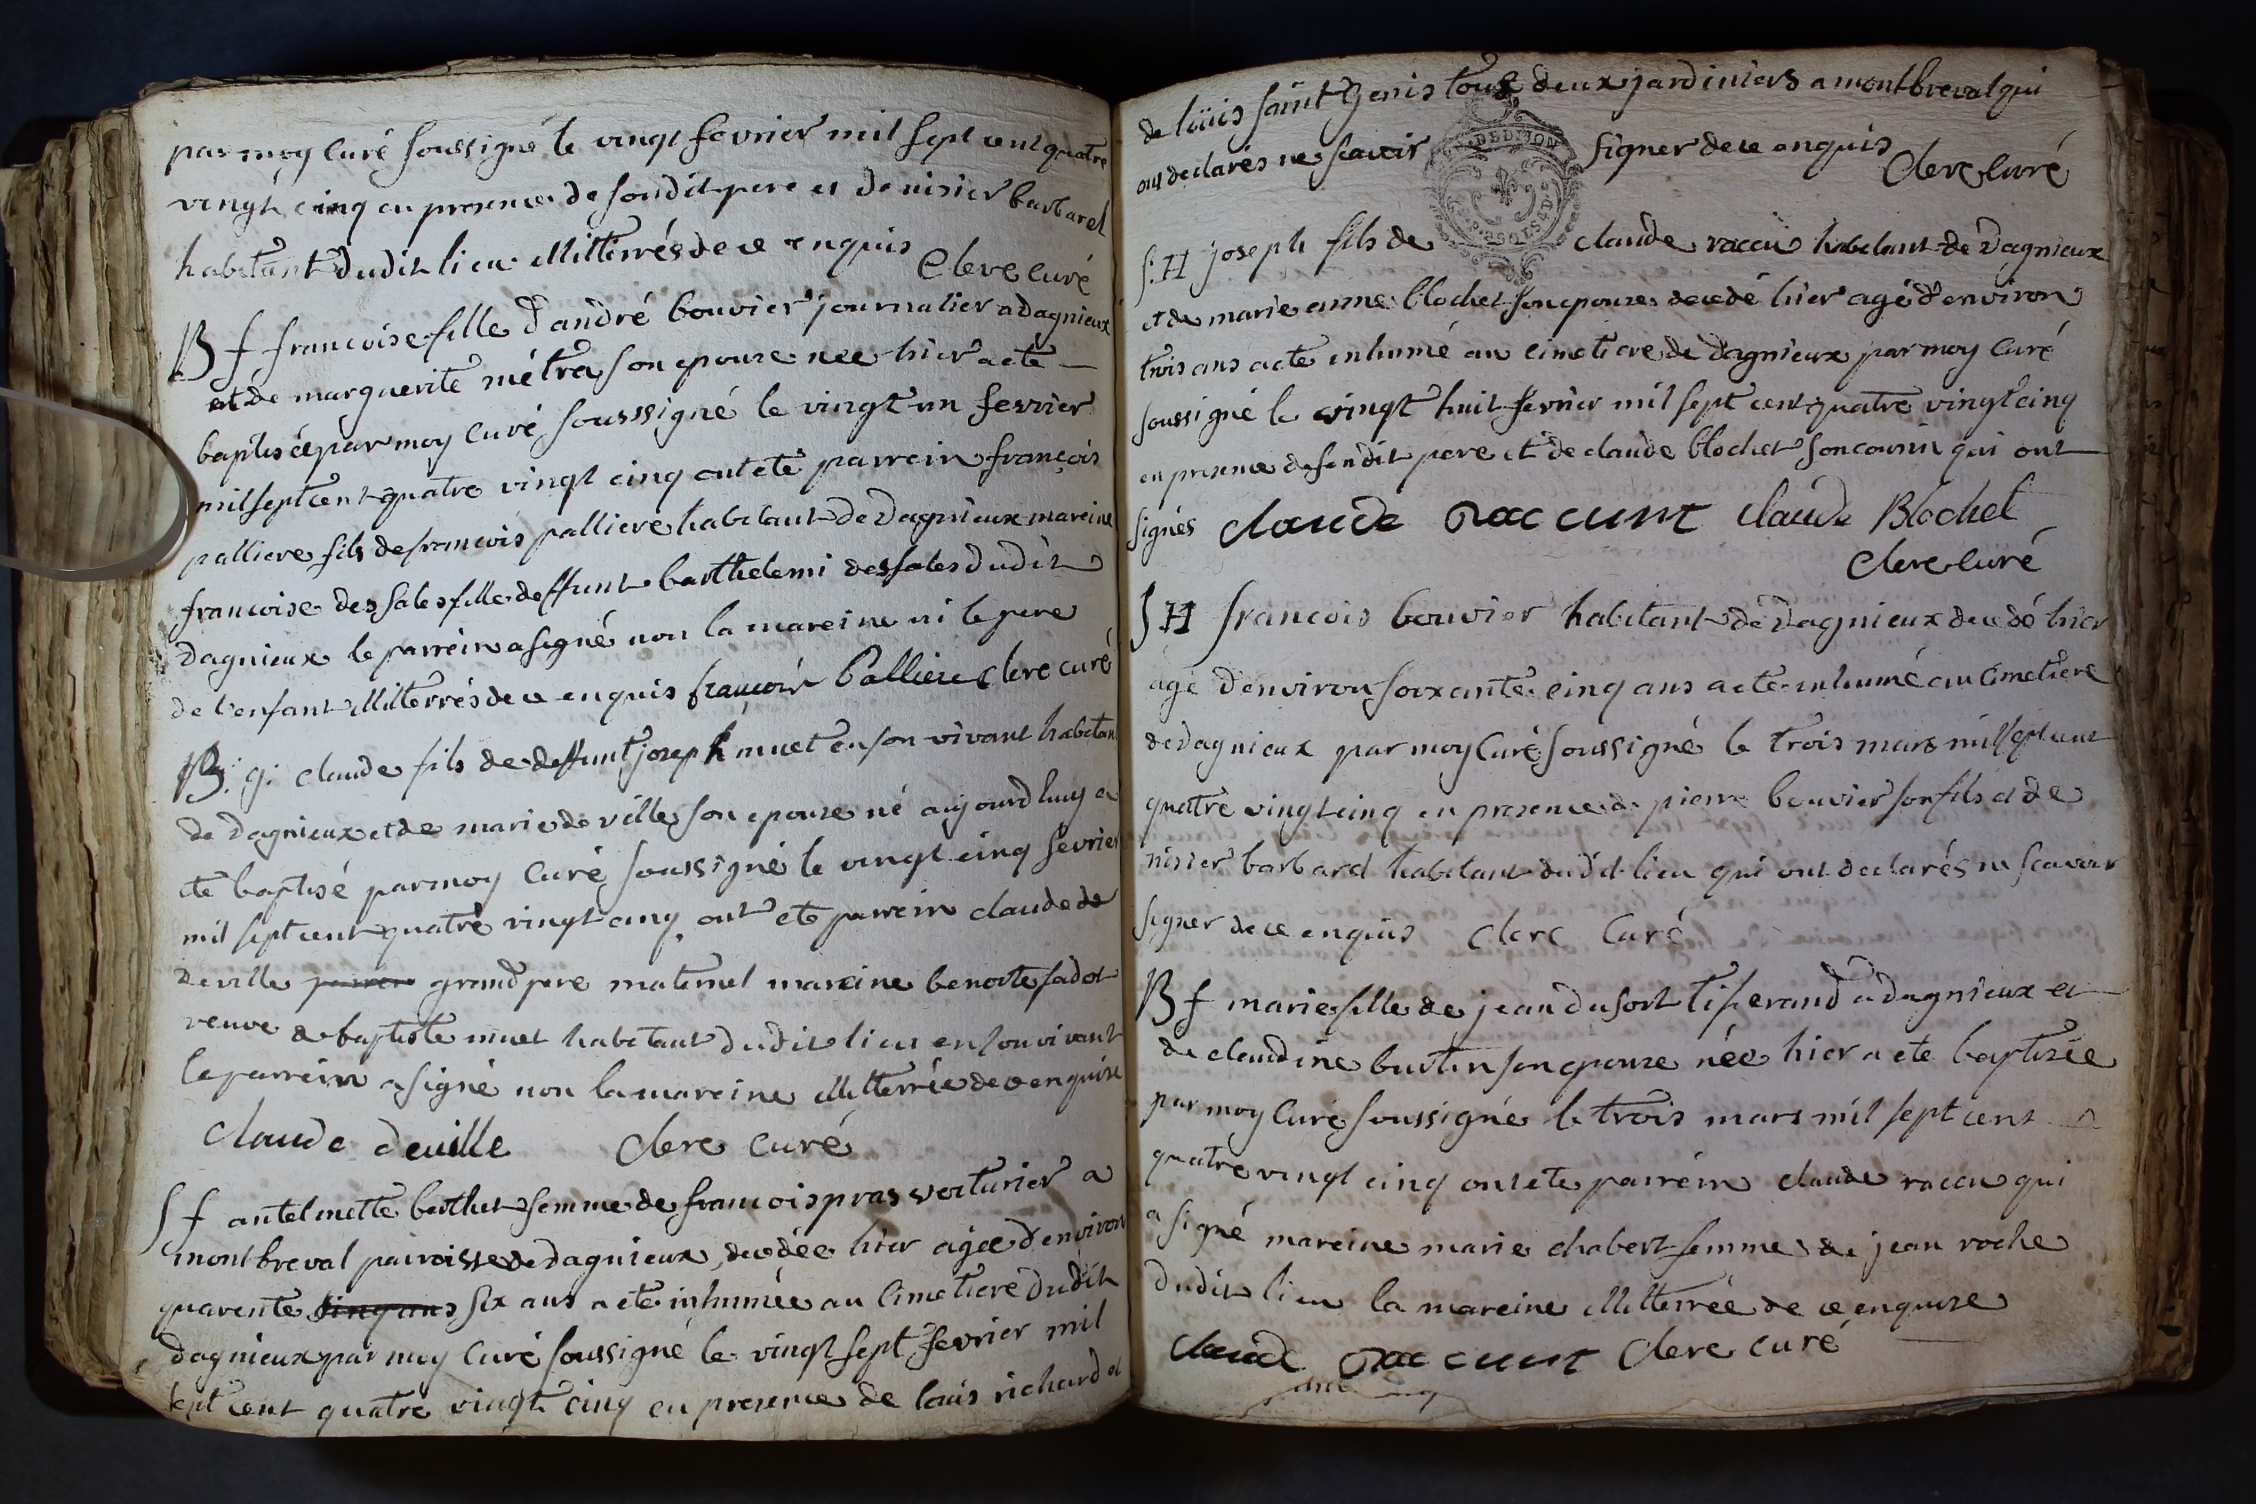 par moy Curé soussigné le vingt fevrier mil sept cent quatre
vingt cinq en presence de sondit pere et de nisier barbaret
habitant dudit lieu illitterrés de ce enquis Clere curé
B f francoise fille d'andré bouvier journalier a dagnieux
et de marguerite métra son epouze nee hier a ete
baptisée par moy Curé soussigné le vingt un fevrier
mil sept cent quatre vingt cinq ont ete parrein françois
palliere fils de francois palliere habitant de dagnieux mareine
francoise des sales fille deffunt barthelemi des sales dudit
dagnieux le parrein a signé non la mareine ni le pere
de l'enfant illitterrés de ce enquis françois Palliere Clere curé
B. g. claude fils de deffunt joseph muet en son vivant habitant
de dagnieux et de marie de ville son epouze né aujourdhuy a
ete baptisé par moy Curé soussigné le vingt cinq fevrier
mil sept cent quatre vingt cinq ont ete parrein claude de
deville grand pere maternel mareine benoite sadot
veuve de baptiste muet habitant dudit lieu en son vivant
le parrein a signé non la mareine illitterrée de ce enquise
claude deville Clere curé
S f antelmette berthet femme de francois pras voiturier a
montbreval parroisse de dagnieux, decedée hier agée d'environ
quarente cinq ans six ans a ete inhumée au Cimetiere dudit
dagnieux par moy Curé soussigné le vingt sept fevrier mil
sept cent quatre vingt cinq en presence de louis richard et
de loüis saint genis tous deux jardiniers a montbreval qui
ont declarés ne scavoir signer de ce enquis Clere curé
S. H joseph fils de claude raccu habitant de dagnieux
et de marie anne blochet son epouze decedé hier agé d'environ
trois ans a ete inhumé au cimetiere de dagnieux par moy Curé
soussigné le vingt huit fevrier mil sept cent quatre vingt cinq
en presence de sondit pere et de claude blochet son cousin qui ont
signés claude raccunt claude Blochet
Clere curé
S H francois bouvier habitant de dagnieux decedé hier
agé d'environ soixante cinq ans a ete inhumé au Cimetiere
de dagnieux par moy Curé soussigné le trois mars mil sept cent
quatre vingt cinq en presence de pierre bouvier son fils et de
nisier barbaret habitant dudit lieu qui ont declarés ne scavoir
signer de ce enquis Clere Curé
B f marie fille de jean dufort tisserand a dagnieux et
de claudine burtin son epouze née hier a ete baptisée
par moy Curé soussigné le trois mars mil sept cent
quatre vingt cinq ont ete parrein claude raccu qui
a signé mareine marie chabert femme de jean roche
dudit lieu la mareine illitterrée de ce enquise
claude raccunt Clere curé